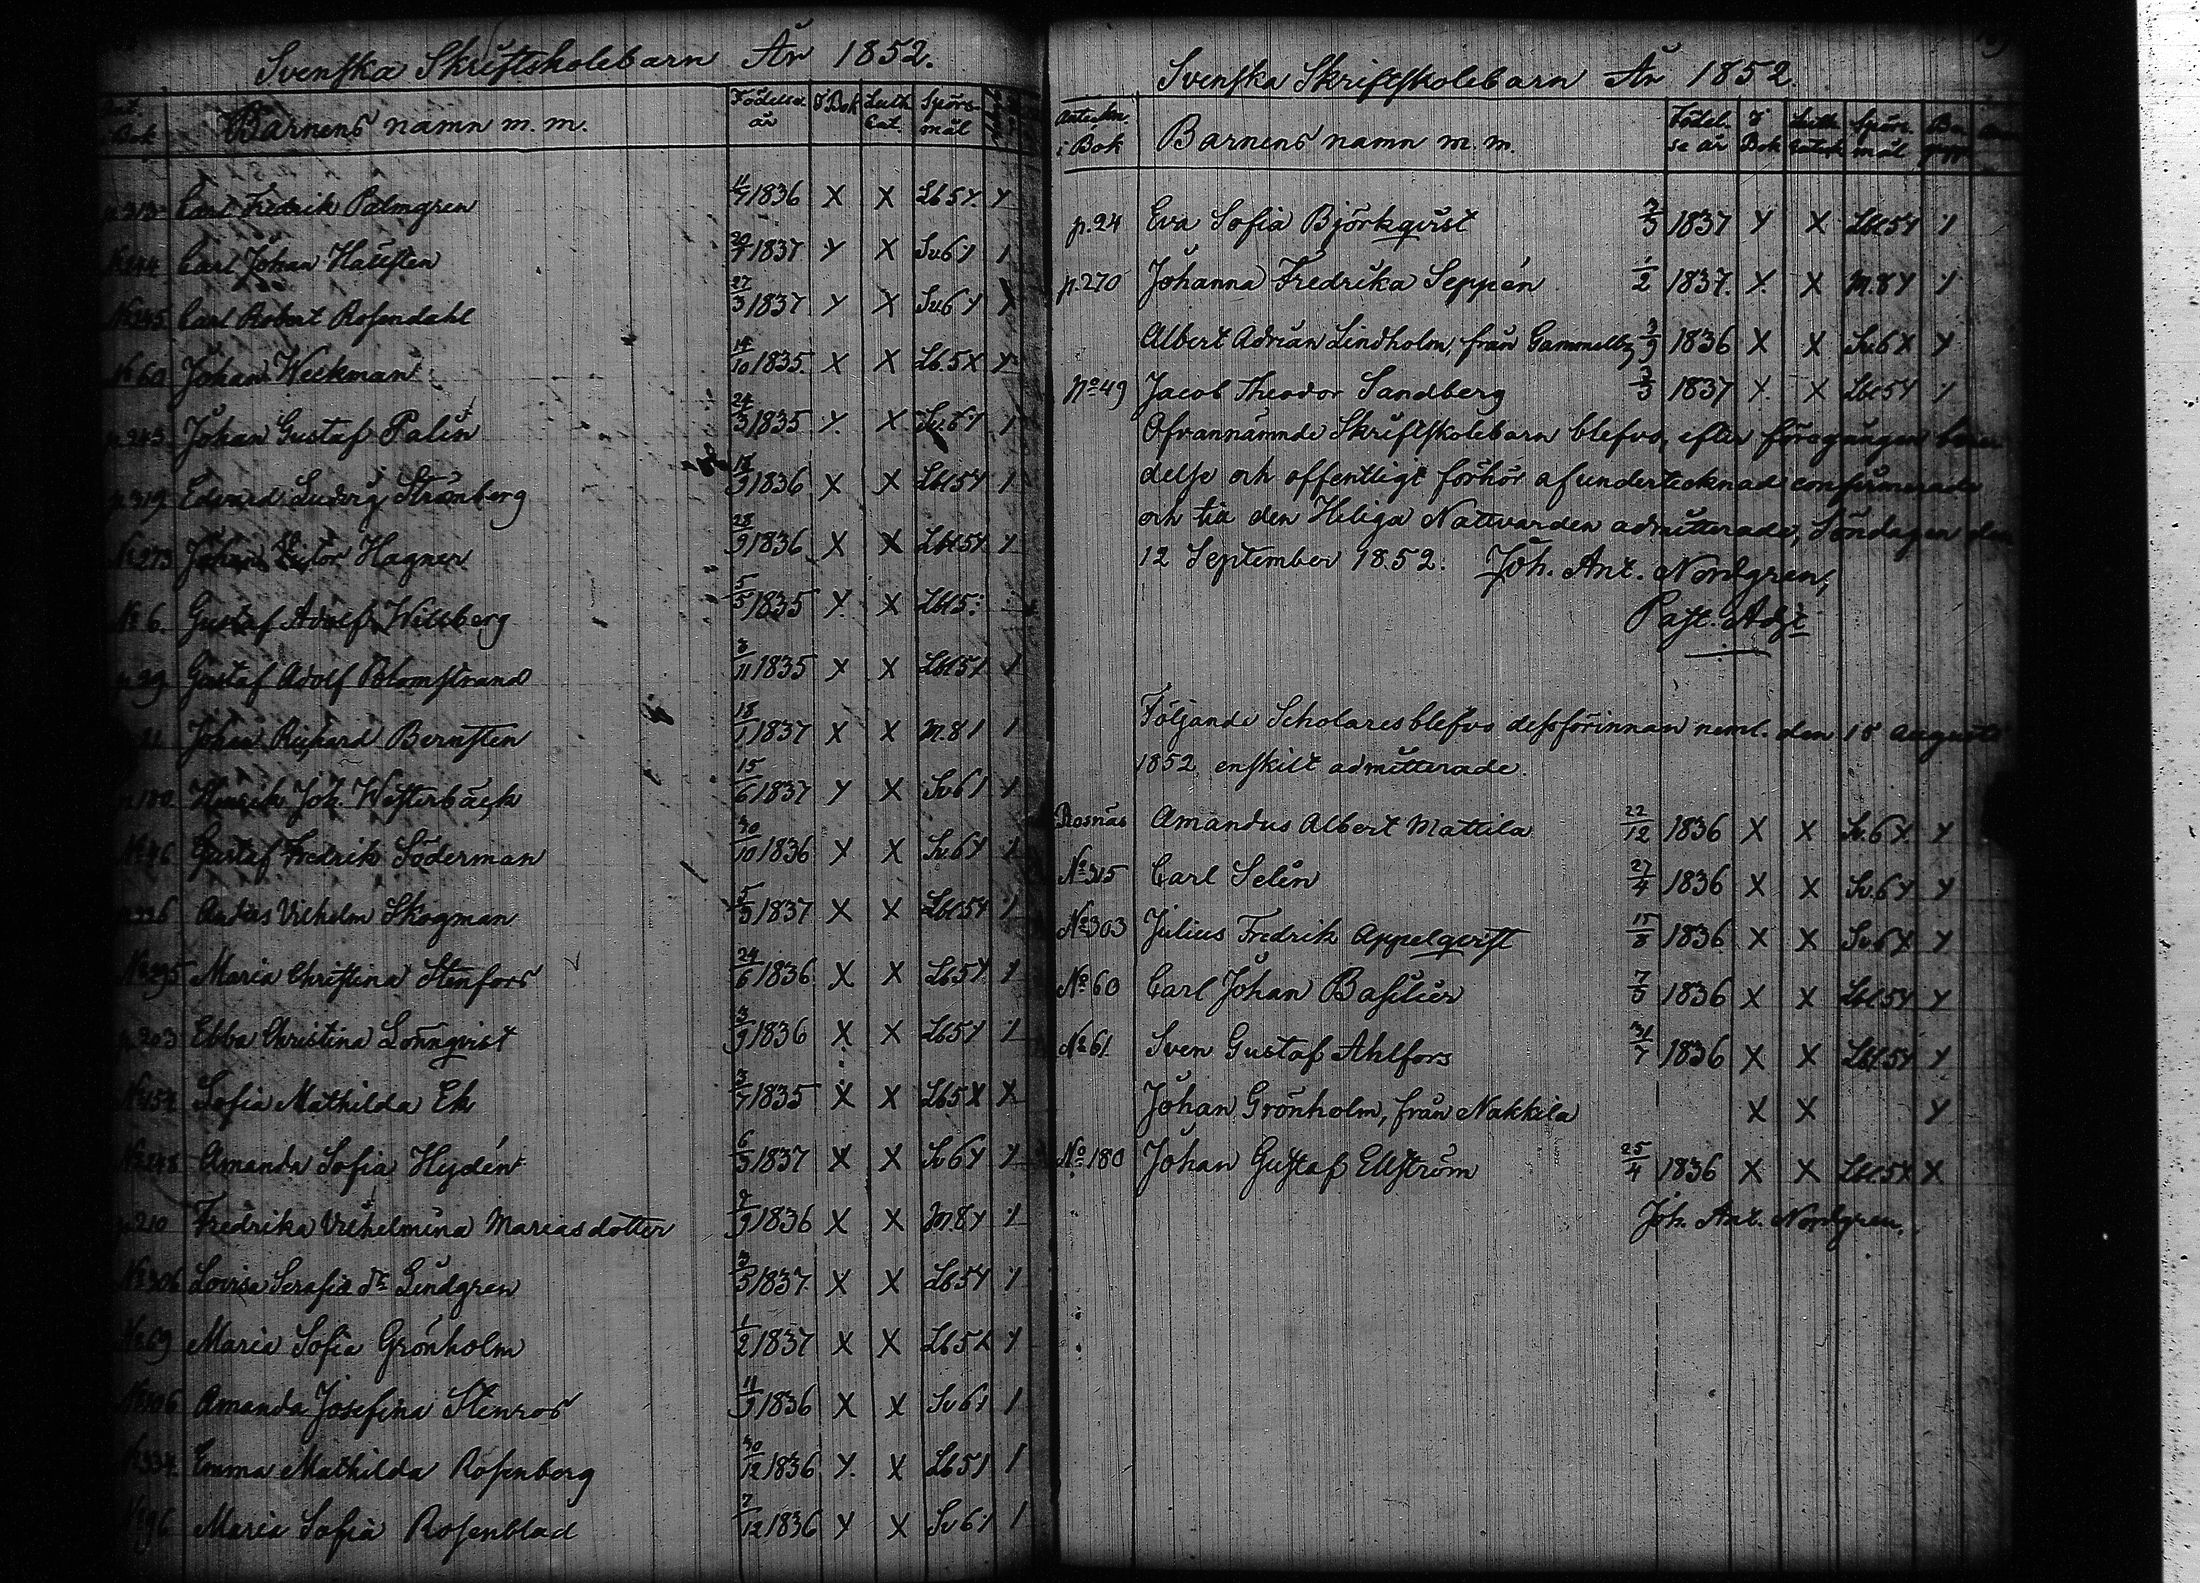 Svenska Skriftskolebarn År 1852.
Bok Barnens namn m. m. Födelse år I Bok Luth. Cat. Spörsmål
p. 313 Carl Fredrik Palmgren 11/4 1836 X X Lb 5 Y Y
Carl Johan Hausten 20/4 1837 Y X Sv. 6 Y 1
No 245 Carl Robert Rosendahl 27/3 1837 Y X Sv. 6 Y Y
No 60 Johan Weckman 14/10 1835 X X Lb. 5 X Y
p. 245 Johan Gustaf Palin 24/3 1835 Y. X Sv. 6 Y 1
p. 319 Edvard Ludvig Strömberg 1836 X X Lbl 5 Y 1
No 273 Johan Victor Hagner 28/9 1836 X X Lbl 5 Y Y
No 6. Gustaf Adolf Willberg 5/5 1835 Y. X Lbl 5
p. 29 Gustaf Adolf Blomstrand 3/11 1835 X X Lbl 5 Y 1
21 Johan Richard Bernsten 18/1 1837 X X M. 8 1 1
p. 180 Henrik Joh. Westerback 15/6 1837 Y X Sv 6 1 Y
No 46 Gustaf Fredrik Söderman 30/10 1836 Y X Sv. 6 Y 1
p. 226 Anders Vilhelm Skogman 5/3 1837 X X Lbl 5 Y 1
No 295 Maria Christina Stenfors 24/6 1836 X X Lb 5 Y Y
p. 203 Ebba Christina Lönnqvist 3/9 1836 X X Lb 5 Y 1
No 154 Sofia Mathilda Ek 3/7 1835 X X Lb 5 X X
No 248 Amanda Sofia Hejdén 6/3 1837 X X Sv 6 Y Y
p. 210 Fredrika Vilhelmina Mariasdotter 7/9 1836 X X M 8 Y 1
No 306 Lovisa Serafia dr Lindgren 3/5 1837 X X Lb 5 Y 1
No 69 Maria Sofia Grönholm 1/2 1837 X X Lb 5 X Y
No 106 Amanda Josefina Stenros 11/9 1836 X X Sv 6 Y 1
No 334. Emma Mathilda Rosenberg 30/12 1836 Y. X Lb 5 Y 1
No 96 Maria Sofia Rosenblad 7/12 1836 Y X Sv 6 Y 1
Svenska Skriftskolebarn År 1852.
Anteckn. i Bok Barnens namn m. m. Födelse år I Bok Luth. Spörsmål
p. 24 Eva Sofia Björkqvist 2/3 1837 Y X Lbl 5 Y 1
p. 270 Johanna Fredrika Seppén 1/2 1837. Y. X M. 8 Y 1
Albert Adrian Lindholm, från Gammelby 3/9 1836 X X Sv. 6 X Y
No 49 Jacob Theodor Sandberg 3/3 1837 X. X Lbl 5 Y 1
Ofvannämnde Skriftskolebarn blefvo, efter föregången bere
delse och offentligt förhör af undertecknad confirmerade
och till den Heliga Nattvarden admitterade, Söndagen den
12 September 1852. Joh. Ant. Nordgren,
Past. Adj:
Följande Scholares blefvo dessförinnan neml. den 15 Augusti
1852, enskilt admitterade.
Rosnäs Amandus Albert Mattila 22/12 1836 X X Sv. 6 X Y
No 315 Carl Selin 27/4 1836 X X Sv. 6 Y Y
No 303 Julius Fredrik Appelqvist 15/8 1836 X X Sv 6 X Y
No 60 Carl Johan Basilier 7/5 1836 X X Lbl 5 Y Y
No 61 Sven Gustaf Ahlfors 31/7 1836 X X Lbl 5 Y Y
Johan Grönholm, från Nakkila X X Y
No 180 Johan Gustaf Ellström 25/4 1836 X X Lbl 5 X X
Joh. Ant. Nordgren.